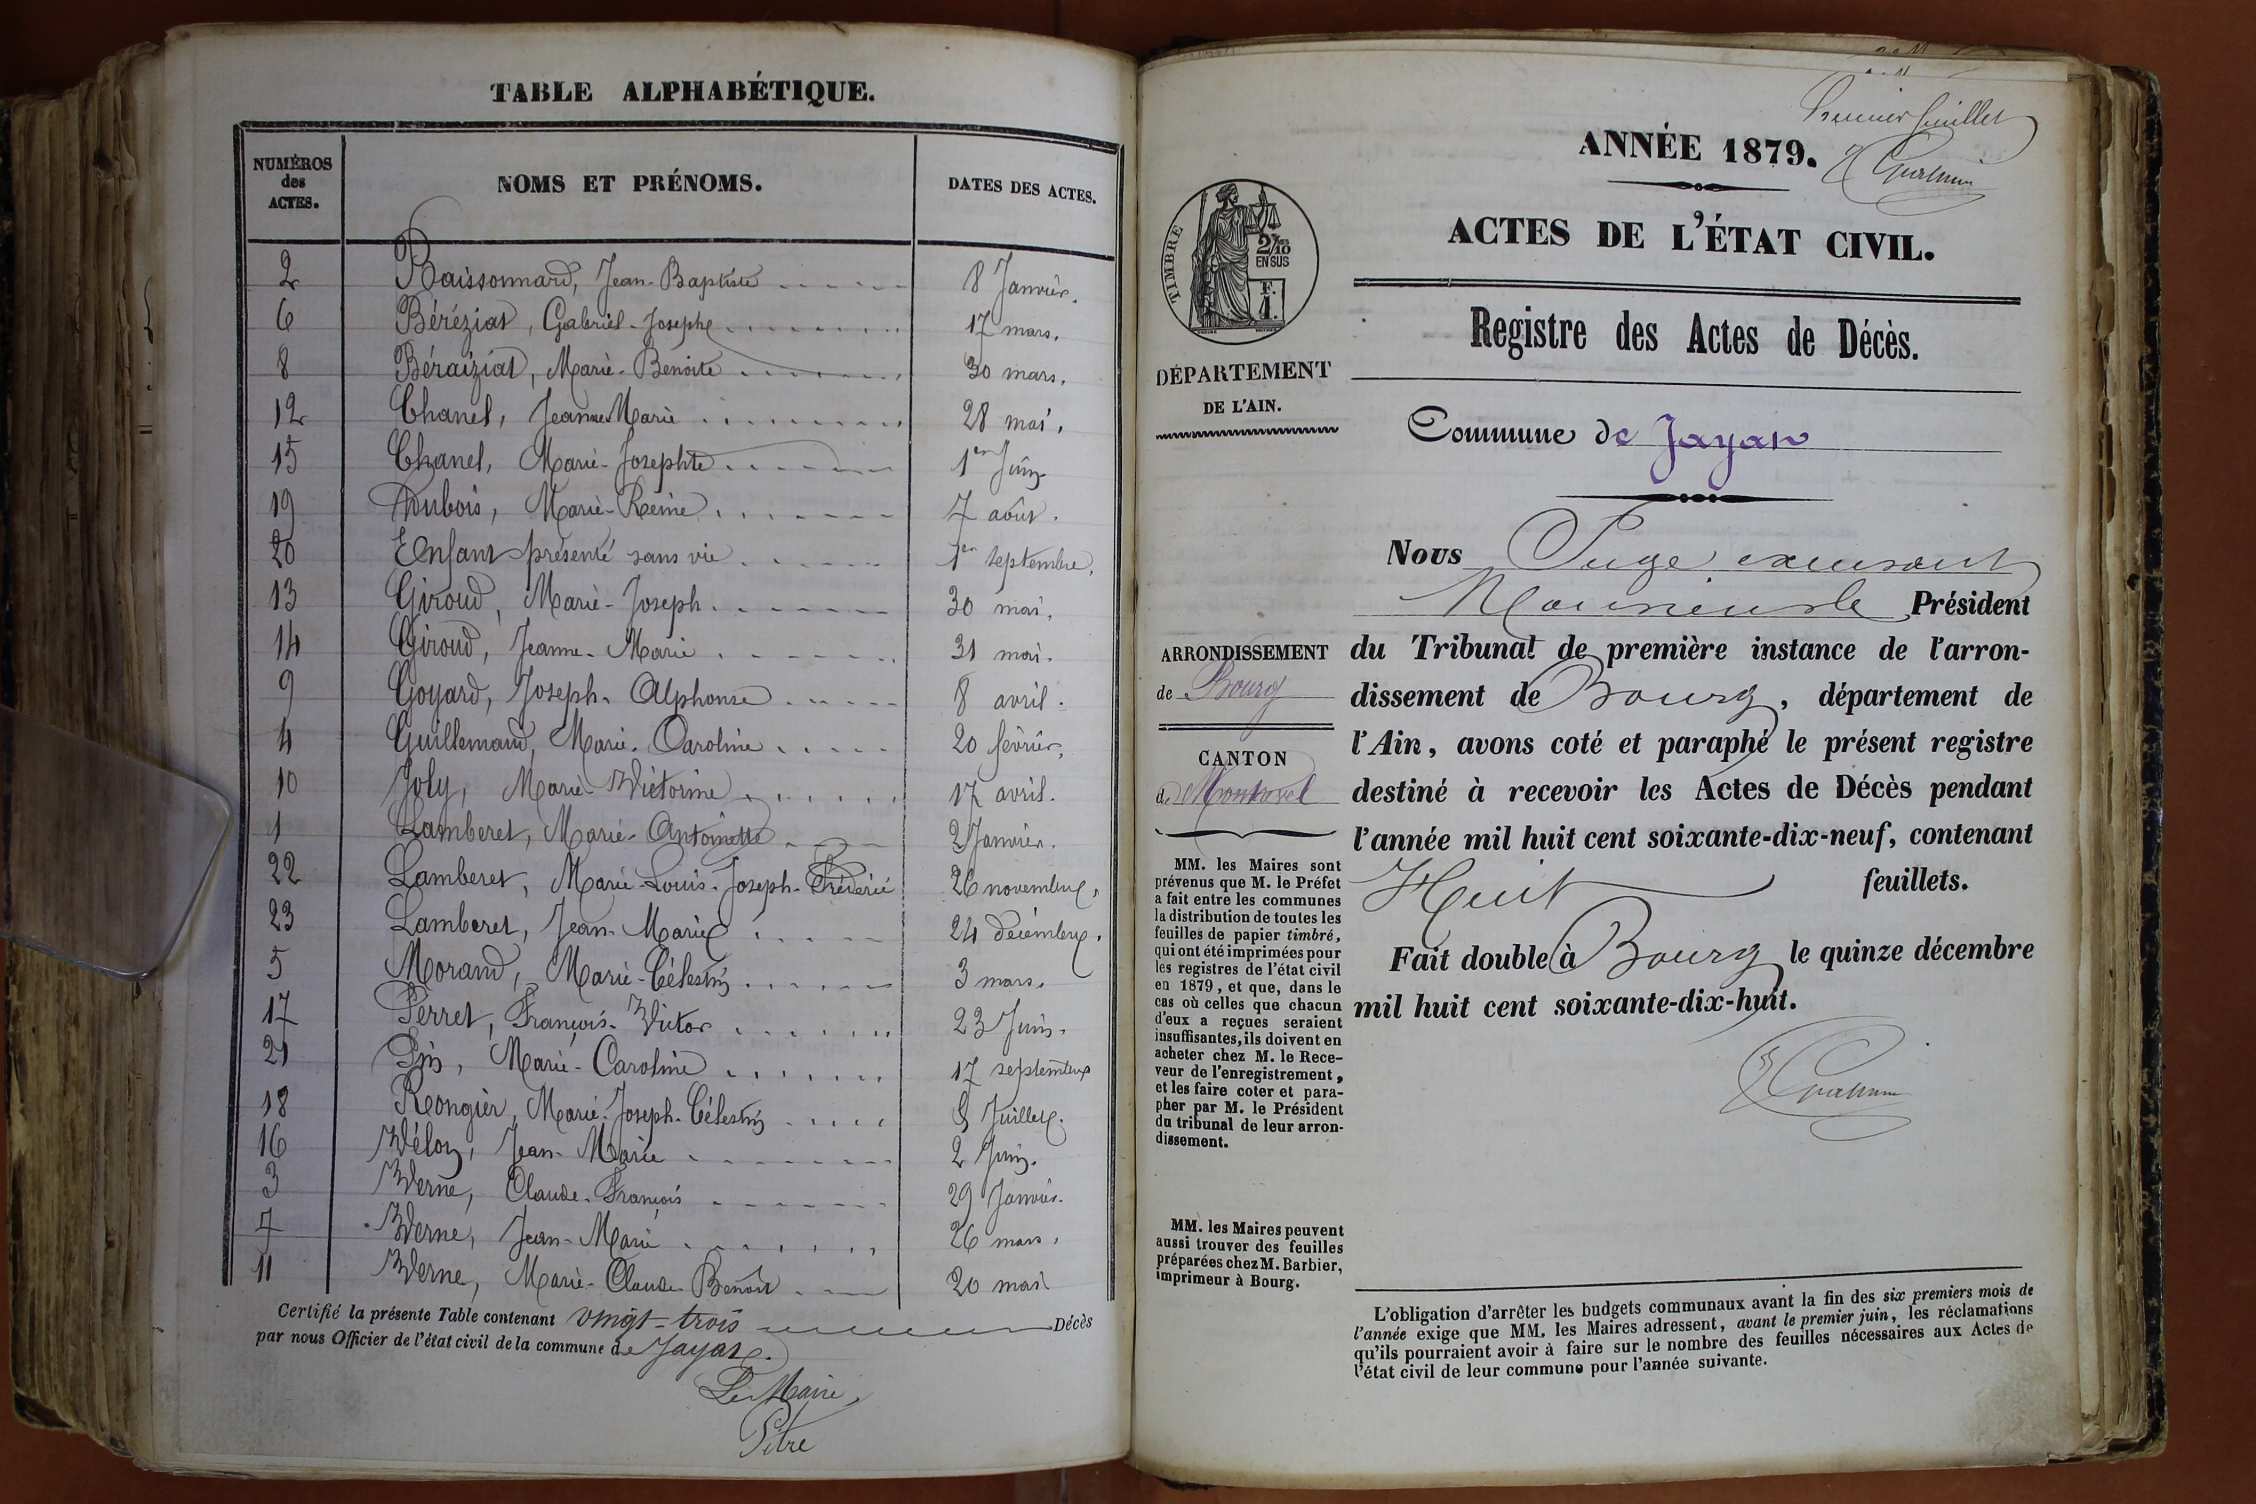 TABLE ALPHABÉTIQUE.
NUMÉROS des ACTES. NOMS ET PRÉNOMS. DATES DES ACTES.
2 Baissonnard, Jean-Baptiste 8 Janvier.
6 Béréziat, Gabriel-Joseph 17 mars.
8 Béraiziat, Marie-Benoite 30 mars.
12 Chanel, Jeanne Marie 28 mai.
15 Chanel, Marie-Josephte 1er Juin
19 Dubois, Marie-Reine 7 août.
20 Enfant présenté sans vie 1er septembre.
13 Giroud, Marie-Joseph 30 mai.
14 Giroud, Jeanne-Marie 31 mai.
9 Goyard, Joseph-Alphonse 8 avril.
4 Guillemaud, Marie-Caroline 20 février.
10 Joly, Marie-Victorine 17 avril.
1 Lamberet, Marie-Antoinette 2 Janvier.
22 Lamberet, Marie-Louis-Joseph-Fréderic 26 novembre.
23 Lamberet, Jean-Marie 24 décembre.
5 Morand, Marie-Célestin 3 mars.
17 Perret, François-Victor 23 Juin.
21 Pin, Marie-Caroline 17 septembre
18 Rongier, Marie-Joseph-Célestin 8 Juillet.
16 Vélon, Jean-Marie 2 Juin.
3 Verne, Claude-François 29 Janvier.
7 Verne, Jean-Marie 26 mars.
11 Verne, Marie-Claude-Benoit 20 mai
Certifié la présente Table contenant vingt-trois Décès
par nous Officier de l'état civil de la commune de Jayat.
Le Maire,
Pitre
Premier feuillet
ANNÉE 1879.
ACTES DE L'ÉTAT CIVIL.
TIMBRE
2/10
EN SUS
F.
1.
Registre des Actes de Décès.
DÉPARTEMENT
DE L'AIN.
Commune de Jayat
Nous Juge
Président
ARRONDISSEMENT
de Bourg
CANTON
de Montrevel
du Tribunal de première instance de l'arron-
dissement de Bourg, département de
l'Ain, avons coté et paraphé le présent registre
destiné à recevoir les Actes de Décès pendant
l'année mil huit cent soixante-dix-neuf, contenant
Huit feuillets.
Fait double à Bourg le quinze décembre
mil huit cent soixante-dix-huit.
MM. les Maires sont
prévenus que M. le Préfet
a fait entre les communes
la distribution de toutes les
feuilles de papier timbré,
qui ont été imprimées pour
les registres de l'état civil
en 1879, et que, dans le
cas où celles que chacun
d'eux a reçues seraient
insuffisantes, ils doivent en
acheter chez M. le Rece-
veur de l'enregistrement,
et les faire coter et para-
pher par M. le Président
du tribunal de leur arron-
dissement.
MM. les Maires peuvent
aussi trouver des feuilles
préparées chez M. Barbier,
imprimeur à Bourg.
L'obligation d'arrêter les budgets communaux avant la fin des six premiers mois de
l'année exige que MM. les Maires adressent, avant le premier juin, les réclamations
qu'ils pourraient avoir à faire sur le nombre des feuilles nécessaires aux Actes de
l'état civil de leur commune pour l'année suivante.